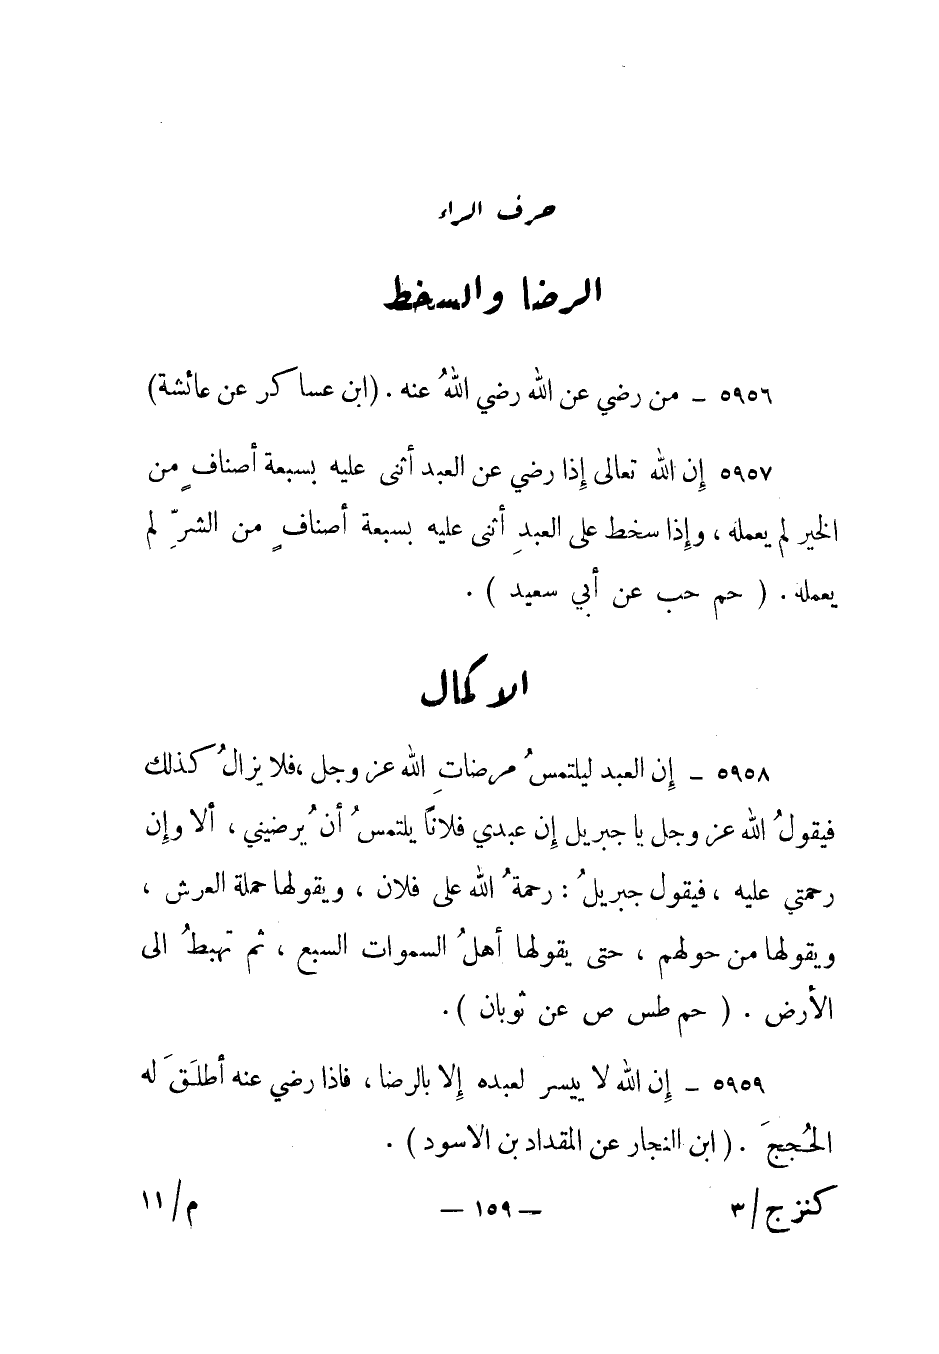 حرف الراء
الرضا والسخط
٥٩٥٦ ـ من رضي عن الله رضي اللهُ عنه . (ابن عساكر عن عائشة)
٥٩٥٧ إِن الله تعالى إِذا رضي عن العبد أثنى عليه بسبعة أصنافٍ من
الخير لم يعمله ، وإِذا سخط على العبدِ أثنى عليه بسبعة أصنافٍ من الشرِّ لم
يعمله . ( حم حب عن أبي سعيد ) .
الاكمال
٥٩٥٨ ـ إِن العبد ليلتمسُ مرضاتِ الله عز وجل ،فلا يزالُ كذلك
فيقولُ الله عز وجل يا جبريل إِن عبدي فلاناً يلتمسُ أن يُرضيني ، ألا وإِن
رحمتي عليه ، فيقول جبريلُ : رحمةُ الله على فلان ، ويقولها حملة العرش ،
ويقولها من حولهم ، حتى يقولها أهلُ السموات السبع ، ثم تهبطُ الى
الأرض . ( حم طس ص عن ثوبان ) .
٥٩٥٩ ـ إِن الله لا ييسر لعبده إِلا بالرضا ، فاذا رضي عنه أطلَقَ له
الحُججَ . ( ابن النجار عن المقداد بن الاسود ) .
كنز ج/٣ — ١٥٩ — م/١١